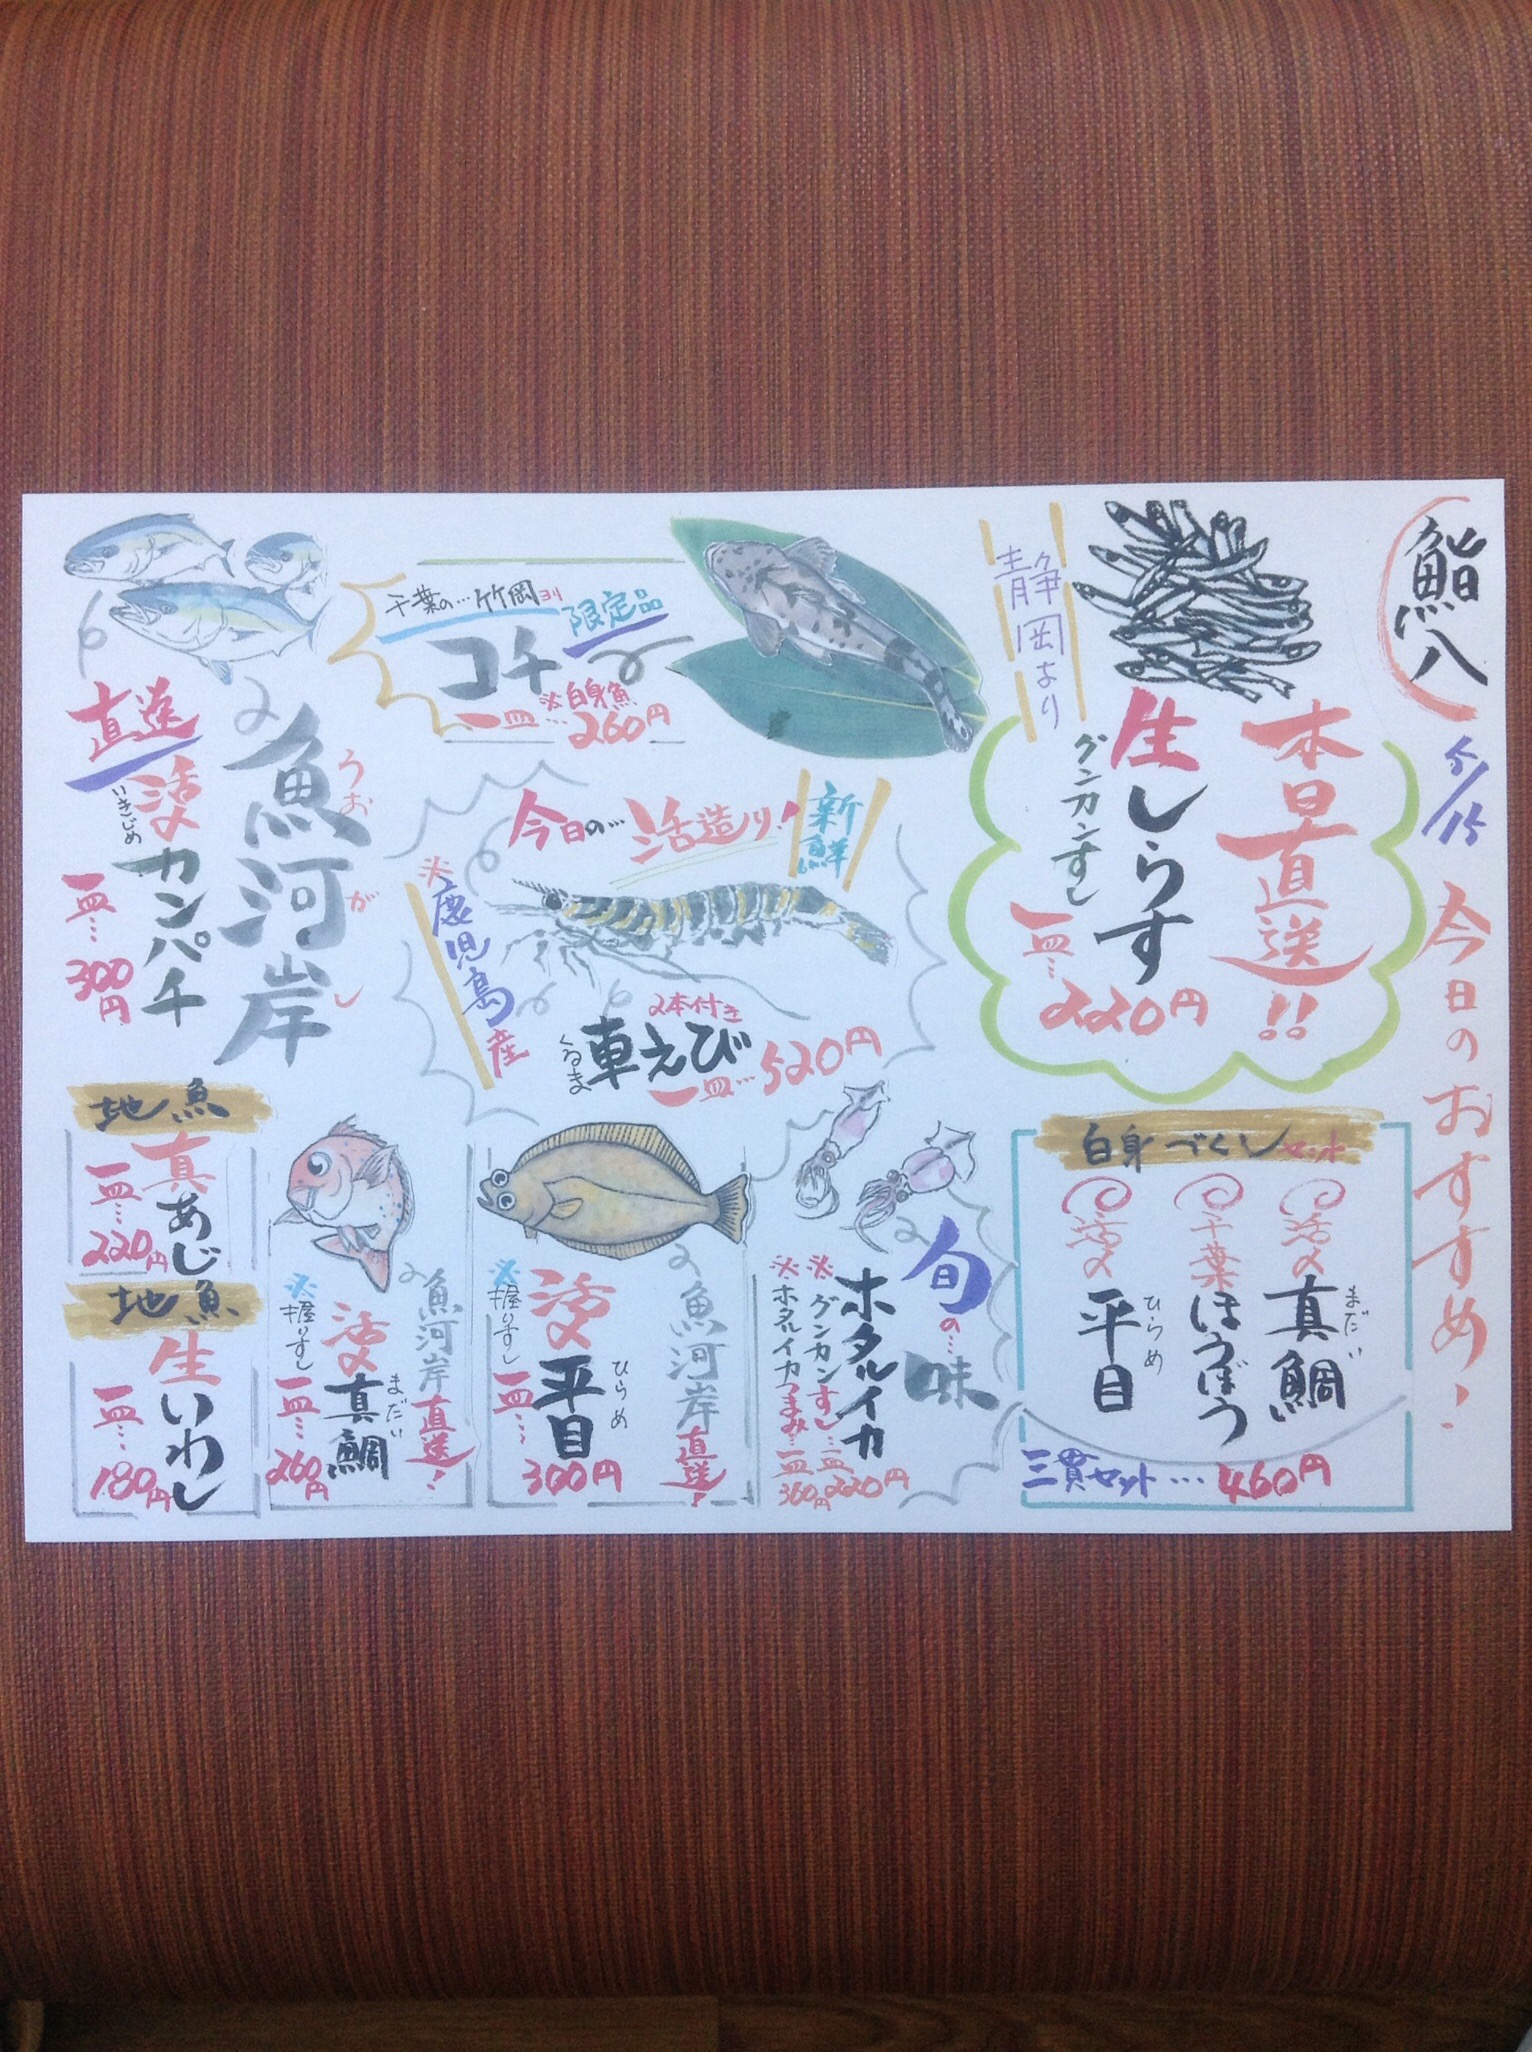 鮨八
5/15
今日のおすすめ!
本日直送!!
生しらす
グンカンすし
一皿…220円
静岡より
白身づくしセット
活〆真鯛
まだい
千葉ほうぼう
活〆平目
ひらめ
三貫セット…460円
千葉の…竹岡ヨリ
限定品
コチ
※白身魚
一皿…260円
今日の…活造り!
新鮮
※鹿児島産
2本付き
車えび
くるま
一皿…520円
旬の…味
ホタルイカ
※グンカンすし…一皿220円
※ホタルイカつまみ…一皿360円
魚河岸
うおがし
直送
活〆カンパチ
いきじめ
一皿…300円
魚河岸直送!
活〆平目
ひらめ
※握りすし
一皿…300円
魚河岸直送!
活〆真鯛
まだい
※握りすし
一皿…260円
地魚
真あじ
一皿…220円
地魚
生いわし
一皿…180円